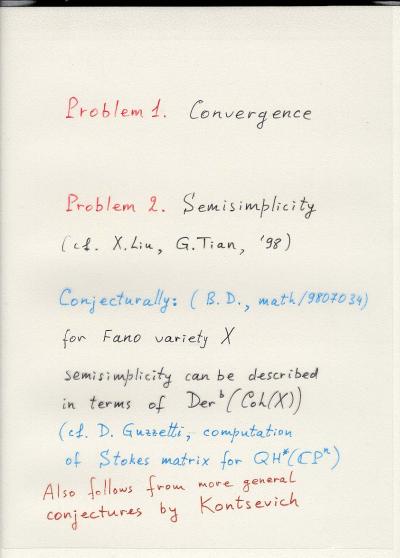 Problem 1. Convergence
Problem 2. Semisimplicity
(cf. X.Liu, G.Tian, '98)
Conjecturally: (B.D., math/9807034)
for Fano variety X
semisimplicity can be described
in terms of Derᵇ(Coh(X))
(cf. D. Guzzetti, computation
of Stokes matrix for QH*(ℂPⁿ)
Also follows from more general
conjectures by Kontsevich